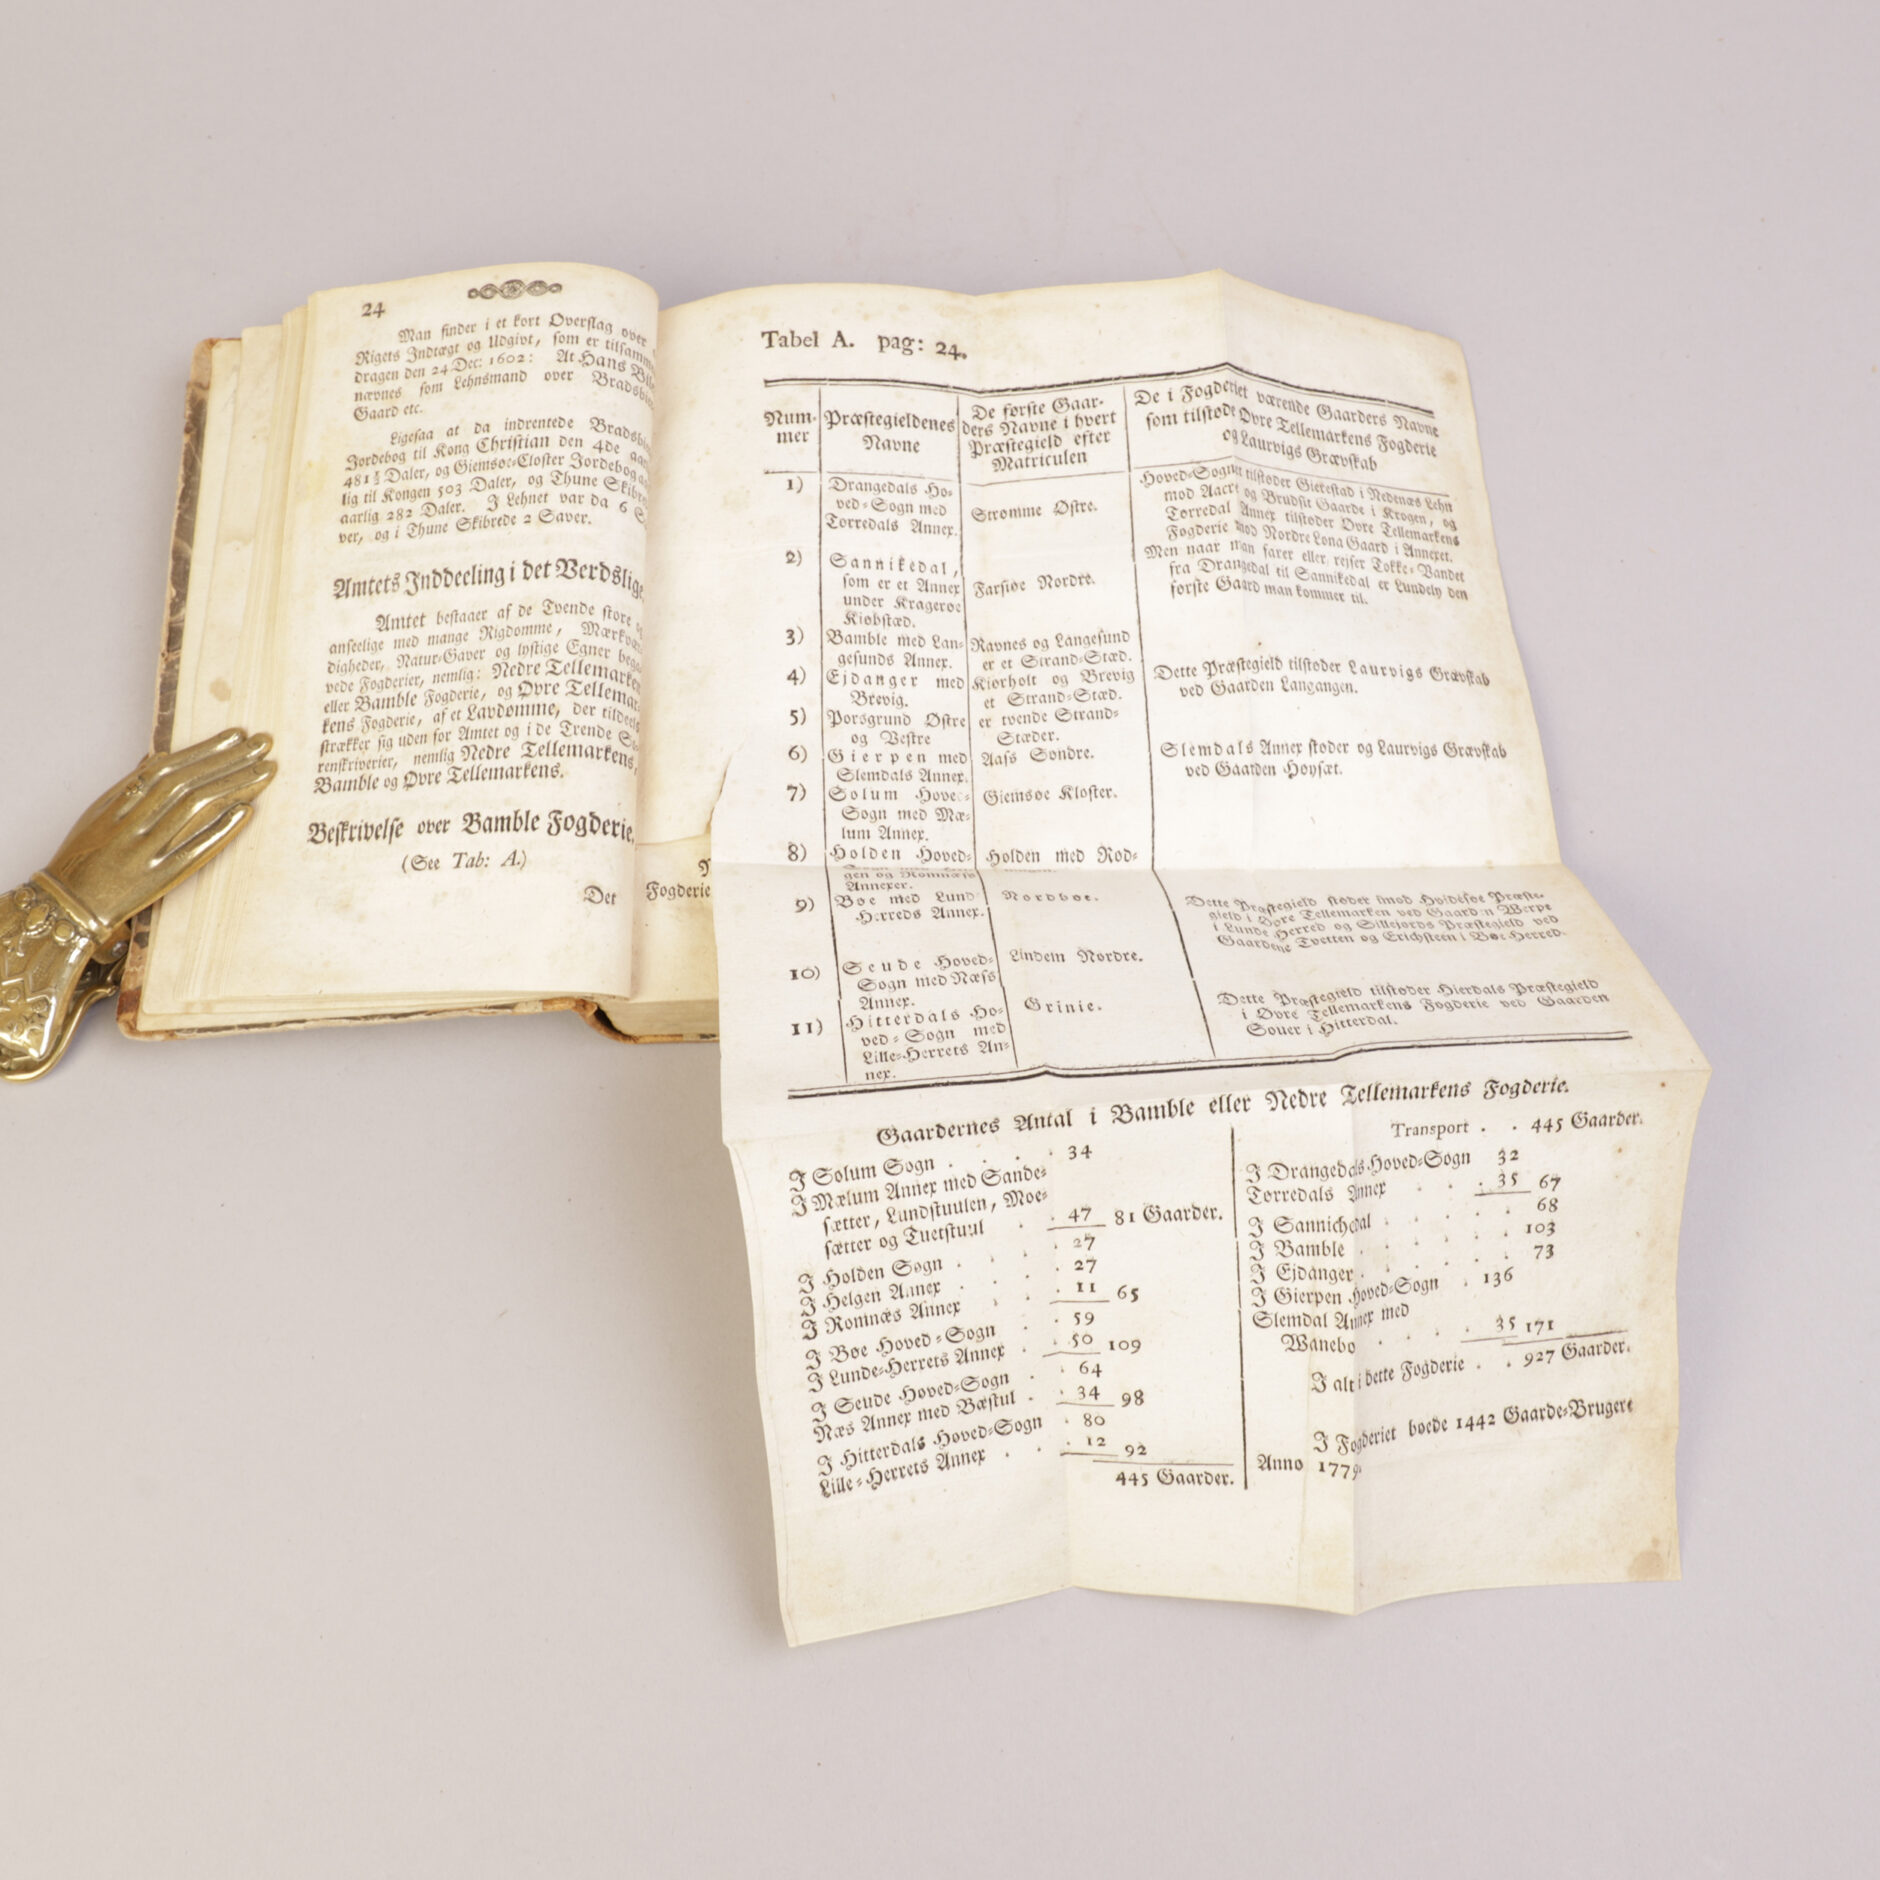 24
Man finder i et kort Overslag over
Rigets Indtægt og Udgivt, som er tilsamm
dragen den 24 Dec: 1602: At Hans Bil
nævnes som Lehnsmand over Bradsb
Gaard etc.
Ligesaa at da indrentede Bradsb
Jordebog til Kong Christian den 4de aar
481½ Daler, og Giemsøe-Closter Jordebog aa
lig til Kongen 503 Daler, og Thune Skibr
aarlig 282 Daler. I Lehnet var da 6 S
ver, og i Thune Skibrede 2 Saver.
Amtets Inddeeling i det Verdslige.
Amtet bestaaer af de Tvende store o
anseelige med mange Rigdomme, Mærkvær
digheder, Natur-Gaver og lystige Egner bega
vede Fogderier, nemlig: Nedre Tellemarken
eller Bamble Fogderie, og Øvre Tellemar-
kens Fogderie, af et Lavdømme, der tildeels
strækker sig uden for Amtet og i de Trende So
renskriverier, nemlig Nedre Tellemarkens,
Bamble og Øvre Tellemarkens.
Beskrivelse over Bamble Fogderie.
(See Tab: A.)
Det
Fogderie
Tabel A. pag: 24.
Num-
mer
Præstegieldenes
Navne
De første Gaar-
ders Navne i hvert
Præstegield efter
Matriculen
De i Fogderiet værende Gaarders Navne
som tilstøde Øvre Tellemarkens Fogderie
og Laurvigs Grævskab
1) Drangedals Ho-
ved-Sogn med
Torredals Annex.
Strømme Østre.
Hoved-Sognet tilstøder Gierestad i Nedenæs Lehn
mod Aaert og Brudsit Gaarde i Krogen, og
Torredal Annex tilstøder Øvre Tellemarkens
Fogderie mod Nordre Lona Gaard i Annexet.
Men naar man farer eller rejser Tokke-Vandet
fra Drangedal til Sannikedal er Lundely den
første Gaard man kommer til.
2) Sannikedal,
som er et Annex
under Kragerøe
Kiøbstæd.
Farsiøe Nordre.
3) Bamble med Lan-
gesunds Annex.
Ravnes og Langesund
er et Strand-Stæd.
4) Ejdanger med
Brevig.
Kiørholt og Brevig
et Strand-Stæd.
Dette Præstegield tilstøder Laurvigs Grævskab
ved Gaarden Langangen.
5) Porsgrund Østre
og Vestre
er tvende Strand-
Stæder.
6) Gierpen med
Slemdals Annex.
Aass Søndre.
Slemdals Annex støder og Laurvigs Grævskab
ved Gaarden Høysæt.
7) Solum Hoved-
Sogn med Mæ-
lum Annex.
Giemsøe Kloster.
8) Holden Hoved-
gen og Romnæss
Annexer.
Holden med Rod-
9) Bøe med Lund
Herreds Annex.
Nordbøe.
Dette Præstegield støder imod Hvidesøe Præste-
gield i Øvre Tellemarken ved Gaarden Verpe
i Lunde Herred og Sillejords Præstegield ved
Gaardene Tvetten og Erichsteen i Bøe Herred.
10) Seude Hoved-
Sogn med Næss
Annex.
Lindem Nordre.
11) Hitterdals Ho-
ved-Sogn med
Lille-Herrets An-
nex.
Grinie.
Dette Præstegield tilstøder Hierdals Præstegield
i Øvre Tellemarkens Fogderie ved Gaarden
Souer i Hitterdal.
Gaardernes Antal i Bamble eller Nedre Tellemarkens Fogderie.
I Solum Sogn . . . . 34
I Mælum Annex med Sande-
sætter, Lundstuulen, Moe-
sætter og Tuetstuul . . 47 81 Gaarder.
I Holden Sogn . . . . 27
I Helgen Annex . . . . 27
I Romnæs Annex . . . 11 65
I Bøe Hoved-Sogn . . 59
I Lunde-Herrets Annex . . 50 109
I Seude Hoved-Sogn . . 64
Næs Annex med Bæstul . . 34 98
I Hitterdals Hoved-Sogn . 80
Lille-Herrets Annex . . . 12 92
445 Gaarder.
Transport . . 445 Gaarder.
I Drangedals Hoved-Sogn 32
Torredals Annex . . . 35 67
I Sannichedal . . . . . 68
I Bamble . . . . . . 103
I Ejdanger . . . . . . 73
I Gierpen Hoved-Sogn . 136
Slemdal Annex med
Wanebo . . . . 35 171
I alt i dette Fogderie . . 927 Gaarder.
I Fogderiet boede 1442 Gaarde-Brugere
Anno 1779.